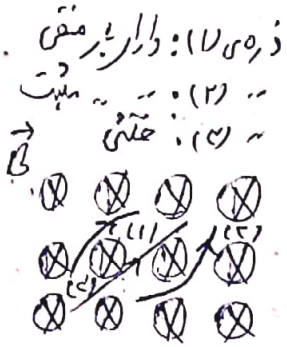 ذره‌ی (۱): دارای بار منفی
〃 (۲): 〃 〃 مثبت
〃 (۳): خنثی
B
(۱) (۲)
(۳)